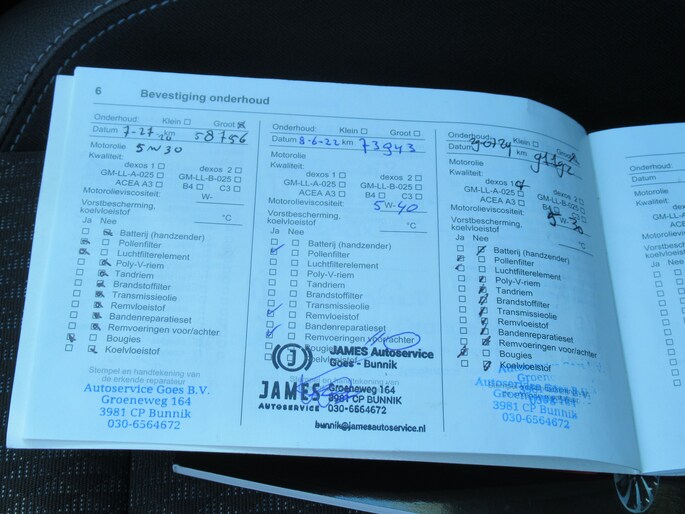 6 Bevestiging onderhoud
Onderhoud: Klein Groot
Datum 7-27-20 km 58756
Motorolie 5W30
Kwaliteit:
dexos 1 dexos 2
GM-LL-A-025 GM-LL-B-025
ACEA A3 B4 C3
Motorolieviscositeit: W-
Vorstbescherming,
koelvloeistof °C
Ja Nee
Batterij (handzender)
Pollenfilter
Luchtfilterelement
Poly-V-riem
Tandriem
Brandstoffilter
Transmissieolie
Remvloeistof
Bandenreparatieset
Remvoeringen voor/achter
Bougies
Koelvloeistof
Stempel en handtekening van
de erkende reparateur
Autoservice Goes B.V.
Groeneweg 164
3981 CP Bunnik
030-6564672
Onderhoud: Klein Groot
Datum 8-6-22 km 73943
Motorolie
Kwaliteit:
dexos 1 dexos 2
GM-LL-A-025 GM-LL-B-025
ACEA A3 B4 C3
Motorolieviscositeit: 5W-40
Vorstbescherming,
koelvloeistof °C
Ja Nee
Batterij (handzender)
Pollenfilter
Luchtfilterelement
Poly-V-riem
Tandriem
Brandstoffilter
Transmissieolie
Remvloeistof
Bandenreparatieset
Remvoeringen voor/achter
Bougies
JAMES Autoservice
Goes - Bunnik
JAMES
AUTOSERVICE
Groeneweg 164
3981 CP BUNNIK
030-6564672
bunnik@jamesautoservice.nl
Onderhoud: Klein Groot
Datum km
Motorolie
Kwaliteit:
dexos 1 dexos 2
GM-LL-A-025 GM-LL-B-025
ACEA A3 B4 C3
Motorolieviscositeit: 5W-30
Vorstbescherming,
koelvloeistof °C
Ja Nee
Batterij (handzender)
Pollenfilter
Luchtfilterelement
Poly-V-riem
Tandriem
Brandstoffilter
Transmissieolie
Remvloeistof
Bandenreparatieset
Remvoeringen voor/achter
Bougies
Koelvloeistof
Autoservice Goes B.V.
Groeneweg 164
3981 CP Bunnik
030-6564672
Onderhoud:
Datum
Motorolie
Kwaliteit:
dexos
GM-LL-A-025
ACEA A3
Motorolieviscositeit
Ja Nee